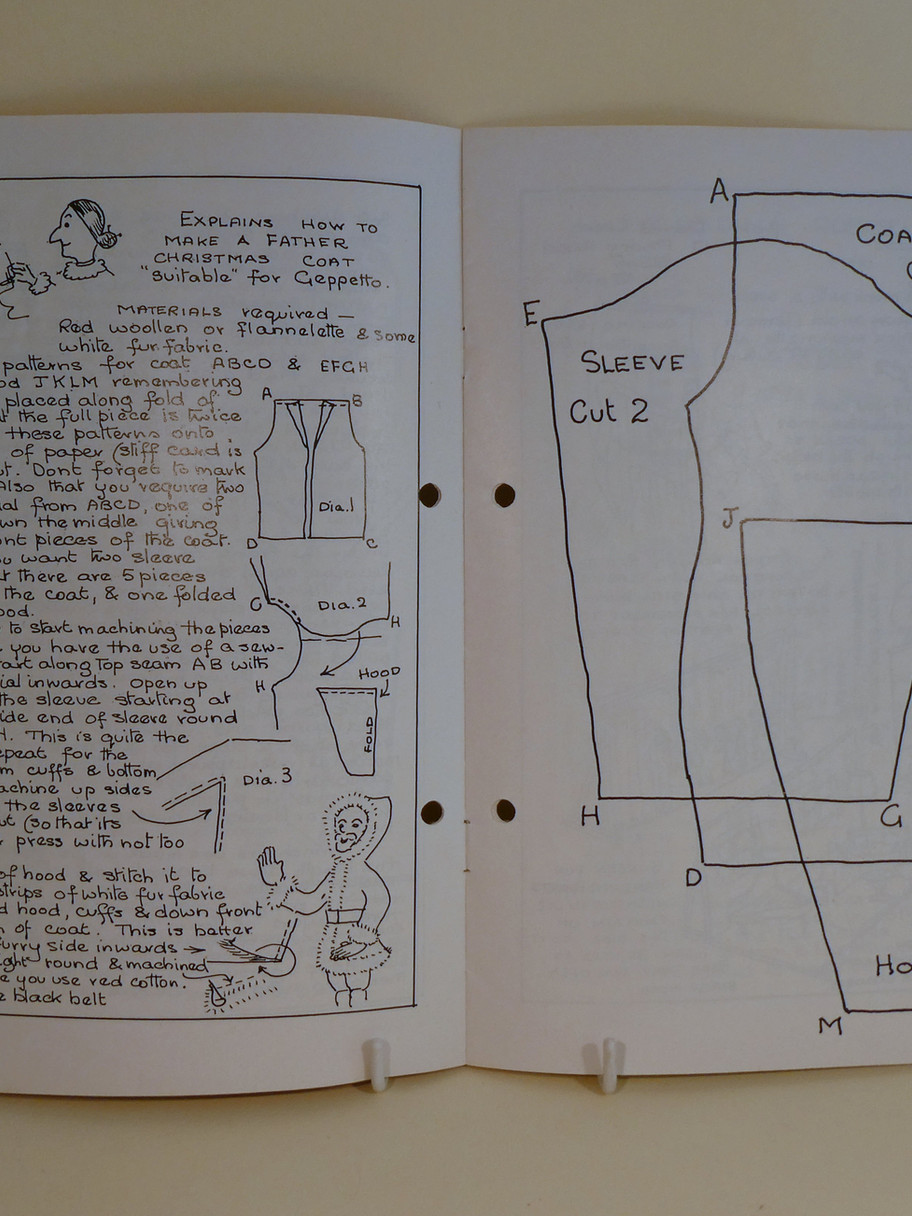 EXPLAINS HOW TO
MAKE A FATHER
CHRISTMAS COAT
"suitable" for Geppetto.
MATERIALS required —
Red woollen or flannelette & some
white fur fabric.
patterns for coat ABCD & EFGH
od JKLM remembering
placed along fold of
t the full piece is twice
these patterns onto
of paper (stiff card is
t. Dont forget to mark
Also that you require two
ial from ABCD, one of
wn the middle giving
nt pieces of the coat.
u want two sleeve
t there are 5 pieces
the coat, & one folded
ood.
to start machining the pieces
you have the use of a sew-
art along Top seam AB with
ial inwards. Open up
the sleeve starting at
ide end of sleeve round
H. This is quite the
epeat for the
m cuffs & bottom
achine up sides
the sleeves
ut (so that its
press with not too
of hood & stitch it to
strips of white fur fabric
d hood, cuffs & down front
m of coat. This is better
furry side inwards
ight round & machined
e you use red cotton.
e black belt
A B
Dia.1
D C
G Dia.2 H
H
HOOD
FOLD
Dia.3
A
COA
E
SLEEVE
Cut 2
J
H G
D
HO
M